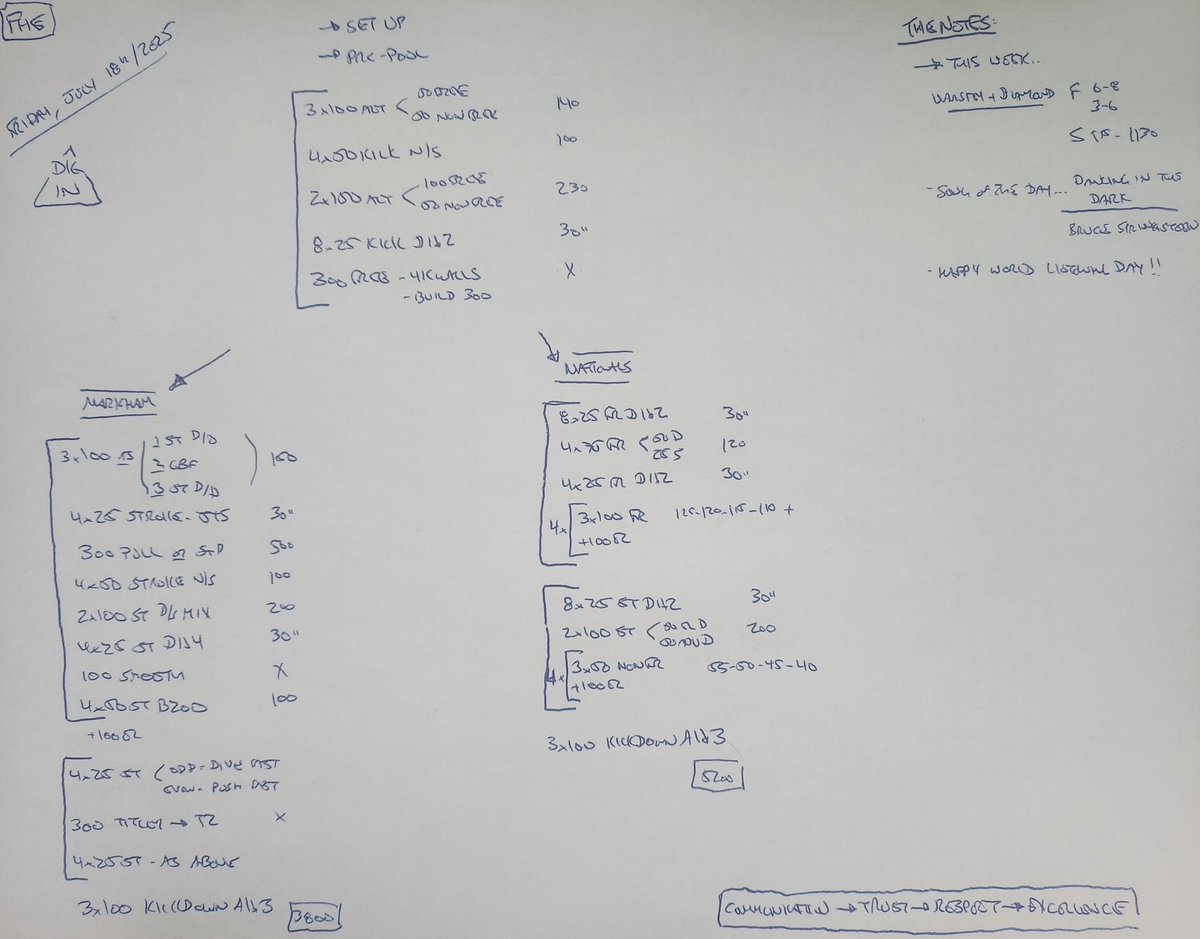 PHE
FRIDAY, JULY 18th/2025
DIG
IN
→ SET UP
→ PRE-POOL
3x100 ALT < 50 FREE
50 NON FREE 140
4x50 KICK N/S 100
2x100 ALT < 100 FREE
50 NON FREE 230
8x25 KICK D1↓2 30"
300 FREE - 4K WALLS X
- BUILD 300
THE NOTES:
→ THIS WEEK..
+ DIAMOND F 6-8
3-6
S - 1130
- SONG of THE DAY... DANCING IN THE
DARK
BRUCE SPRINGSTEEN
- HAPPY WORLD LISTENING DAY!!
MARKHAM
3x100 AS ( 1 ST D/D
2 CBF
3 ST D/D ) 150
4x25 STROKE - STS 30"
300 PULL or ST P 500
4x50 STROKE N/S 100
2x100 ST D/S MIX 200
4x25 ST D1↓4 30"
100 SMOOTH X
4x50 ST B200 100
+100Ω
4x25 ST < ODD - DIVE FAST
EVEN - PUSH FAST
300 → T2 X
4x25 ST - AS ABOVE
3x100 KICKDOWN A1↓3 3800
NATIONALS
8x25 FR D1↓2 30"
4x75 FR < 50 D
25 S 120
4x25 FR D1↓2 30"
4x 3x100 FR 125-120-115-110 +
+100Ω
8x25 ST D1↓2 30"
2x100 ST < 200
4x 3x50 NON FR 55-50-45-40
+100Ω
3x100 KICKDOWN A1↓3
5200
COMMUNICATION → TRUST → RESPECT → EXCELLENCE